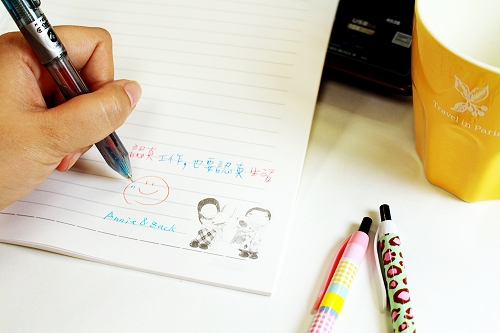 認真工作，也要認真生活
Annie & Back
Travel in Paris